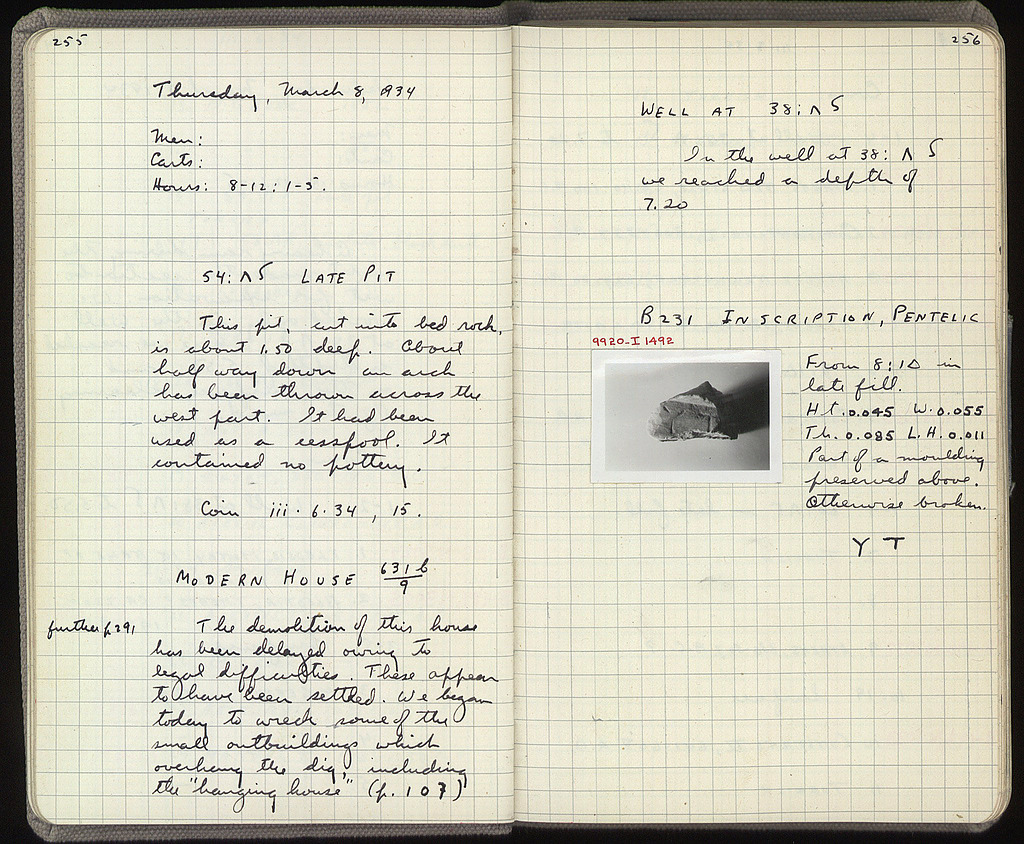 255
Thursday, March 8, 1934
Men:
Carts:
Hours: 8-12; 1-5.
54: ΛS LATE PIT
This pit, cut into bed rock,
is about 1.50 deep. About
half way down an arch
has been thrown across the
west part. It had been
used as a cesspool. It
contained no pottery.
Coin iii · 6 · 34, 15.
MODERN HOUSE 631b/9
further p. 291
The demolition of this house
has been delayed owing to
legal difficulties. These appear
to have been settled. We began
today to wreck some of the
small outbuildings which
overhang the dig, including
the "hanging house" (p. 107)
256
WELL AT 38: ΛS
In the well at 38: ΛS
we reached a depth of
7.20
B231 INSCRIPTION, PENTELIC
9920-I 1492
From 8:ΙΔ in
late fill.
Ht. 0.045 W. 0.055
Th. 0.085 L.H. 0.011
Part of a moulding
preserved above.
Otherwise broken.
Υ Τ